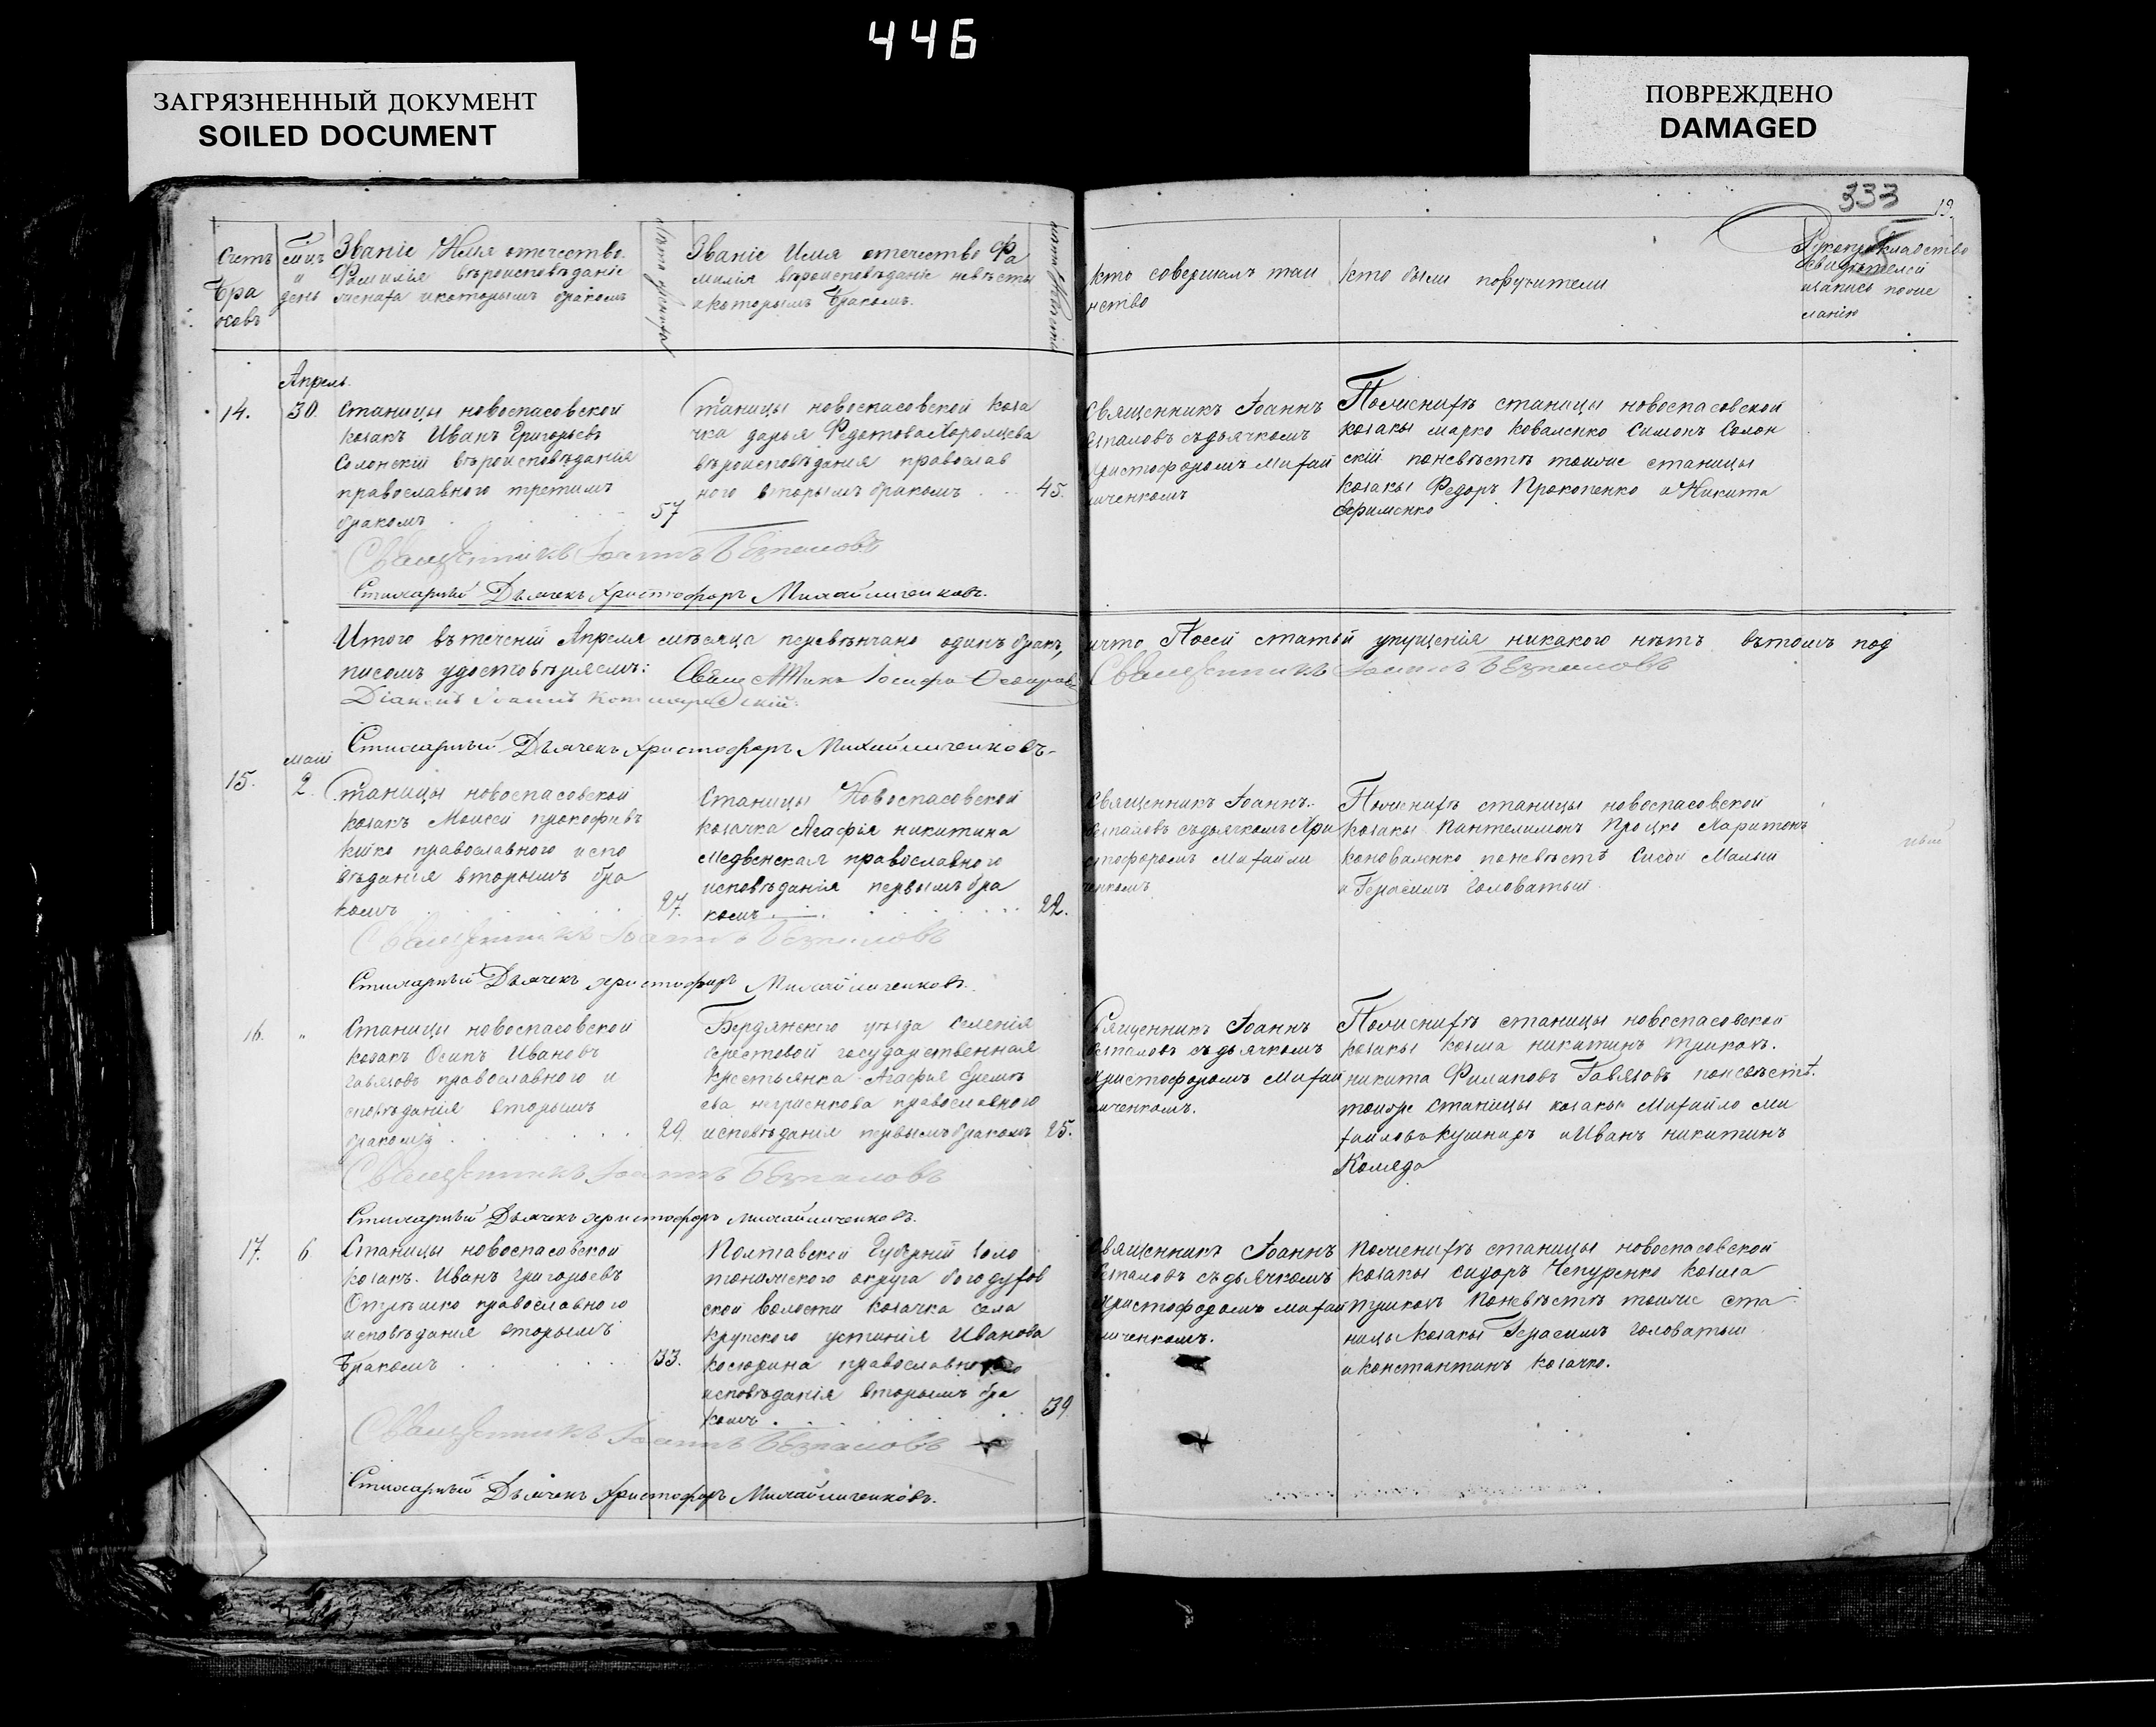 446
ЗАГРЯЗНЕННЫЙ ДОКУМЕНТ
SOILED DOCUMENT
ПОВРЕЖДЕНО
DAMAGED
333
19.
Счетъ
Бра
ковъ
и
день
Званіе Имя отечество
Фамилія вѣроисповѣданіе
жениха и которымъ бракомъ
лѣта жениха
Званіе Имя отечество Фа
милія вѣроисповѣданіе невѣсты
и которымъ бракомъ.
лѣта невѣсты
кто совершалъ таи
нство
кто были поручители
свидѣтелей
Апрель
14.
30.
Станицы новоспасовской
козакъ Иванъ Григорьевъ
Солонскій вѣроисповѣданія
православного третимъ
бракомъ
57
Станицы новоспасовской коза
чка дарья Федотова
вѣроисповѣданія православ
ного вторымъ бракомъ
45.
Священникъ Іоаннъ
съдьячкомъ
Христофоромъ Михай
личенкомъ
Пожених станицы новоспасовской
козакы марко коваленко Симонъ Солон
скій поневѣстѣ тоиже станицы
козакы Федоръ Прокопенко и Никита
Ефименко
Священникъ Іоаннъ Безпаловъ
Стихарный Дьячекъ Христофоръ Михайличенковъ.
Итого въ теченіи Апреля мѣсяца перевѣнчано одинъ бракъ, ичто Посей статьи упущенія никакого нѣтъ вътомъ под
писомъ удостовѣряемъ:
Священникъ Іоаннъ Безпаловъ
Діаконъ Іоаннъ
Стихарный Дьячекъ Христофоръ Михайличенковъ.
маій
15.
2.
Станицы новоспасовской
козакъ Моисей прокофиевъ
кійко православного испо
вѣданія вторымъ бра
комъ
27.
Станицы Новоспасовской
козачка Агафія никитина
Медвенская православного
исповѣданія первымъ бра
комъ
22.
Священникъ Іоаннъ
съдьячкомъ Хри
стофоромъ Михайли
ченкомъ
Пожених станицы новоспасовской
козакы Пантелимонъ Процко Харитонъ
коноваленко поневѣстѣ Сисой Малый
и Герасимъ Головатый
Священникъ Іоаннъ Безпаловъ
Стихарный Дьячекъ христофоръ Михайличенковъ.
16.
"
Станицы новоспасовской
козакъ Осипъ Ивановъ
Гавязовъ православного и
сповѣданія вторымъ
бракомъ
29.
Бердянского уѣзда селенія
берестовой государственная
крестьянка Агафья Ереме
ева негриенкова православного
исповѣданія первымъ бракомъ
25.
Священникъ Іоаннъ
съдьячкомъ
Христофоромъ Михай
личенкомъ.
Пожених станицы новоспасовской
козакы козма никитинъ
никита Филиповъ Гавязовъ поневѣстѣ.
тоиже Станицы козакы Михайло Ми
хайловъ кушниръ и Иванъ никитинъ
Коляда
Священникъ Іоаннъ Безпаловъ
Стихарный Дьячекъ христофоръ михайличенковъ.
17.
6
Станицы новоспасовской
козакъ. Иванъ Григорьевъ
православного
исповѣданія вторымъ
Бракомъ
33.
Полтавской Губерніи Золо
тоношского округа богодухов
ской волости козачка села
крупского устинія Иванова
косюрина православного
исповѣданія вторымъ бра
комъ
39.
Священникъ Іоаннъ
съдьячкомъ
Христофоромъ михай
личенкомъ.
пожених станицы новоспасовской
козакы сидоръ Чепуренко козма
поневѣстѣ тоиже ста
ницы козакы Герасимъ Головатый
и константинъ козачко.
Священникъ Іоаннъ Безпаловъ
Стихарный Дьячекъ Христофоръ Михайличенковъ.